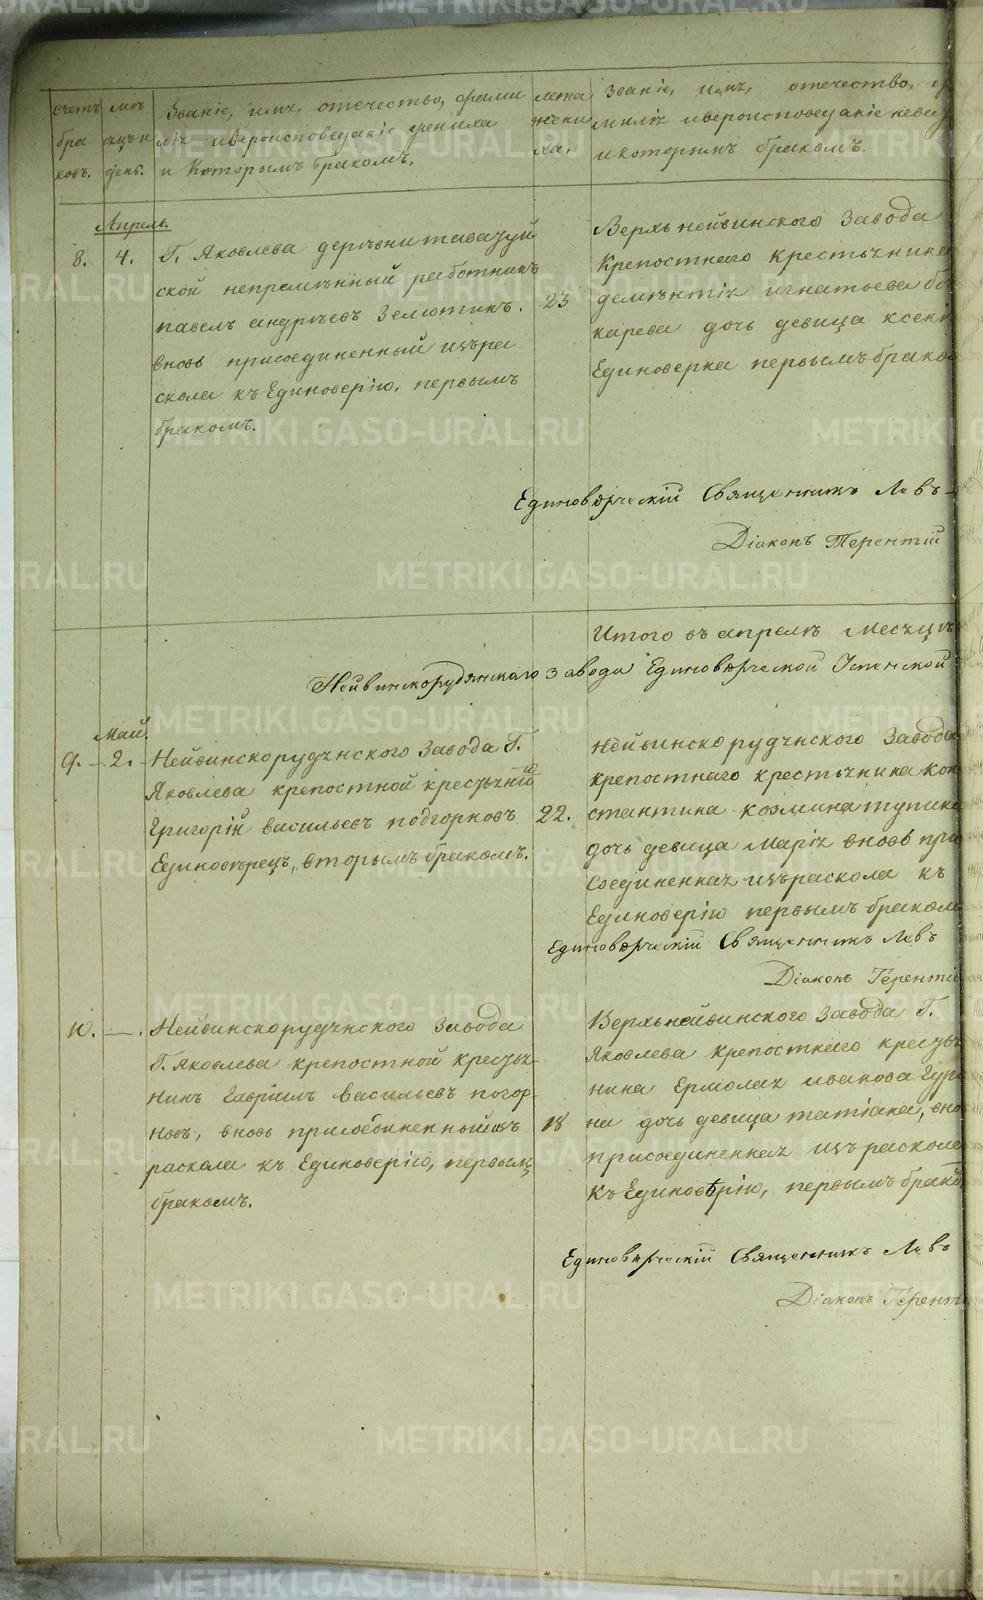 счетъ бра ковъ.
мѣ сяцъ и день.
Званіе, имя, отечество, фами
лія и вероисповеданіе жениха
и Которымъ бракомъ.
лета жени ха.
Званіе, имя, отечество,
милія и вероисповеданіе невес
и которымъ бракомъ.
Апрель.
8. 4.
Г. Яковлева деревни
ской непременный работникъ
павелъ андреевъ
вновь присоединенный изъ ра
скола къ Единоверію, первымъ
бракомъ.
23
Верхъ нейвинского Завода
Крепостнаго крестьянина
дементія игнатьева бо
карева дочь девица ксені
Единоверка первымъ брако
Единовѣрческій Священникъ Левъ
Діаконъ Терентій
Итого въ апреле месяце
Нейвинскорудянскаго завода Единовѣрческой Успенской
Май.
9. - 2. -
Нейвинскорудянского Завода Г.
Яковлева крепостной крестьянинъ
Григорій васильевъ подгорновъ
Единоверецъ, вторымъ бракомъ.
22.
Нейвинско рудянского Завода
крепостнаго крестьянина кон
стантина козмина тупика
дочь девица Марія вновь при
соединенная изъ раскола къ
Единоверію первымъ бракомъ
Единовѣрческій Священникъ Левъ
Діаконъ Терентій
10. —.
Нейвинскорудянского завода
Г. Яковлева крепостной кресьян-
никъ Гавріилъ васильевъ погор-
новъ, вновь присоединенный изъ
раскола къ Единоверію, первымъ
бракомъ.
18
Верхънейвинского Завода Г.
Яковлева крепостнаго кресья
нина Ермолая иванова Гур
на дочь девица татіана, вно
присоединенная изъ раскола
къ Единовѣрію, первымъ брако
Единовѣрческій Священникъ Левъ
Діаконъ Терент
METRIKI.GASO-URAL.RU